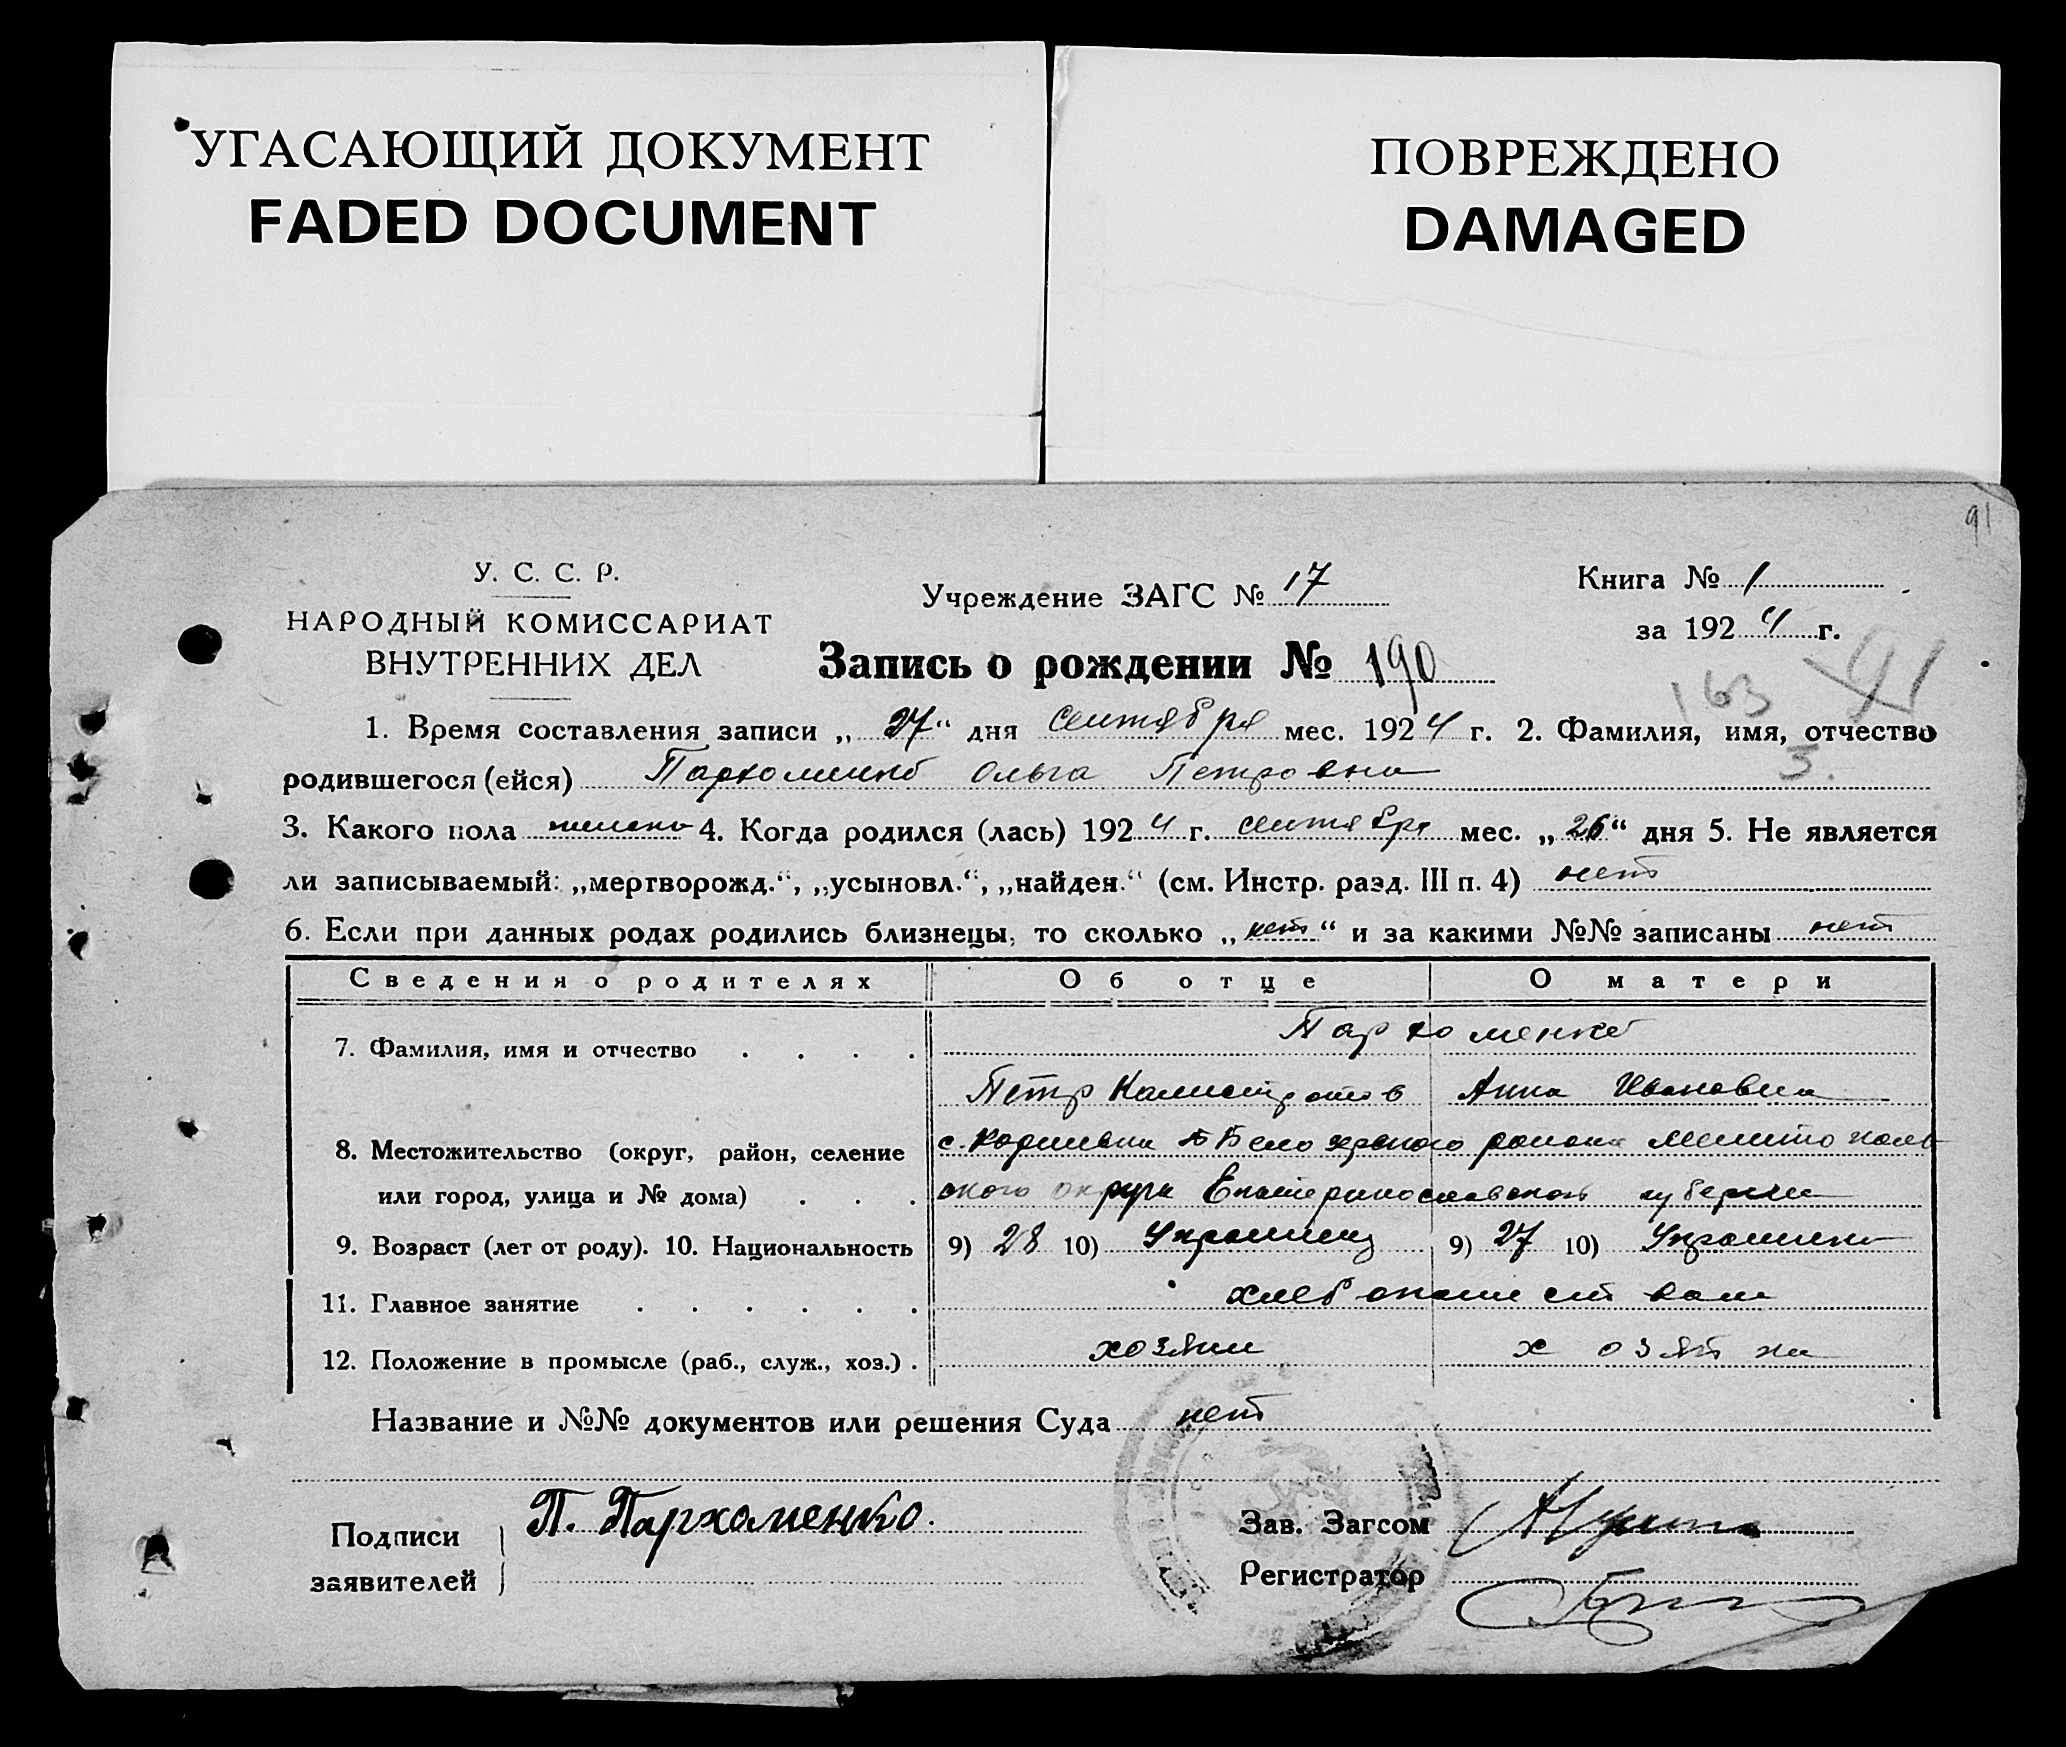 УГАСАЮЩИЙ ДОКУМЕНТ
FADED DOCUMENT
ПОВРЕЖДЕНО
DAMAGED
91
У. С. С. Р.
НАРОДНЫЙ КОМИССАРИАТ
ВНУТРЕННИХ ДЕЛ
Учреждение ЗАГС № 17
Книга № 1
за 1924 г.
Запись о рождении № 190
163 91
1. Время составления записи „27“ дня сентября мес. 1924 г. 2. Фамилия, имя, отчество
родившегося (ейся) Пархоменко Ольга Петровна
3.
3. Какого пола женско 4. Когда родился (лась) 1924 г. сентября мес. „26“ дня 5. Не является
ли записываемый: „мертворожд.“, „усыновл.“, „найден.“ (см. Инстр. разд. III п. 4) нет
6. Если при данных родах родились близнецы, то сколько „нет“ и за какими №№ записаны нет
Сведения о родителях Об отце О матери
7. Фамилия, имя и отчество Пархоменко
Петр Калистратов Анна Ивановна
8. Местожительство (округ, район, селение с. Белозерского района Мелитополь
или город, улица и № дома) ского округа Екатеринославской губернии
9. Возраст (лет от роду). 10. Национальность 9) 28 10) Украинец 9) 27 10) Украинка
11. Главное занятие хлебопашество
12. Положение в промысле (раб., служ., хоз.) хозяин хозяйка
Название и №№ документов или решения Суда нет
Подписи П. Пархоменко.
заявителей
Зав. Загсом
Регистратор